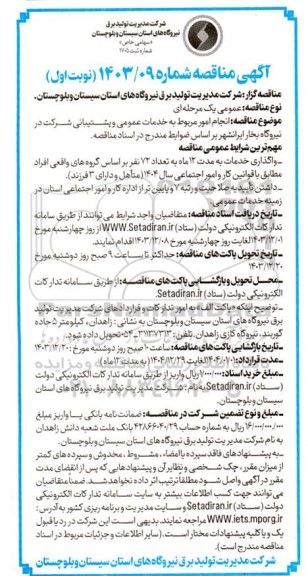 شرکت مدیریت تولید برق
نیروگاه‌های استان سیستان و بلوچستان
«سهامی خاص»
شماره ثبت ۲۰۵
آگهی مناقصه شماره ۱۴۰۳/۰۹ (نوبت اول)
مناقصه گزار: شرکت مدیریت تولید برق نیروگاه های استان سیستان و بلوچستان.
نوع مناقصه: عمومی یک مرحله ای
موضوع مناقصه: انجام امور مربوط به خدمات عمومی و پشتیبانی شرکت در
نیروگاه بخار ایرانشهر بر اساس ضوابط مندرج در اسناد مناقصه.
مهم‌ترین شرایط عمومی مناقصه
ـ واگذاری خدمات به مدت ۱۲ ماه به تعداد ۷۲ نفر بر اساس گروه های واقعی افراد
مطابق با قوانین کار و امور اجتماعی سال ۱۴۰۴ (متأهل و دارای ۳ فرزند).
ـ داشتن تأیید صلاحیت و رتبه ۷ و پایین تر از اداره کار و امور اجتماعی استان در
زمینه خدمات عمومی.
ـ تاریخ دریافت اسناد مناقصه: متقاضیان واجد شرایط می توانند از طریق سامانه
تدارکات الکترونیکی دولت (ستاد) www.Setadiran.ir از روز چهارشنبه مورخ
۱۴۰۳/۱۲/۰۱ لغایت روز چهارشنبه مورخ ۱۴۰۳/۱۲/۰۸ اقدام نمایند.
ـ تاریخ تحویل پاکت های مناقصه: حداکثر تا ساعت ۹ صبح روز دوشنبه مورخ
۱۴۰۳/۱۲/۲۰
ـ محل تحویل و بازگشایی پاکت های مناقصه: از طریق سامانه تدارکات
الکترونیکی دولت (ستاد) Setadiran.ir.
ـ توضیح اینکه «پاکت الف» به امور تدارکات و قراردادهای شرکت مدیریت تولید
برق نیروگاه های استان سیستان و بلوچستان به نشانی: زاهدان، کیلومتر ۵ جاده
کورین، نیروگاه گازی زاهدان تلفن: تحویل داده شود.
ـ تاریخ بازگشایی پاکت های مناقصه: ساعت ۱۰ صبح روز دوشنبه مورخ: ۱۴۰۳/۱۲/۲۰
ـ مدت قرارداد: لغایت ۱۴۰۴/۱۲/۲۹ (به مدت ۱۲ ماه)
ـ مبلغ خرید اسناد: ۱/۰۰۰/۰۰۰ ریال واریز از طریق سامانه تدارکات الکترونیکی دولت
(ستاد) Setadiran.ir بنام: شرکت مدیریت تولید برق نیروگاه های استان
سیستان و بلوچستان.
ـ مبلغ و نوع تضمین شرکت در مناقصه: ضمانت نامه بانکی یا واریز مبلغ
ریال به شماره حساب بانک ملت شعبه دانش زاهدان
به نام شرکت مدیریت تولید برق نیروگاه های استان سیستان و بلوچستان.
ـ به پیشنهادهای فاقد سپرده یا امضاء، مشروط، مخدوش و سپرده های کمتر
از میزان مقرر، چک شخصی و نظایر آن و پیشنهادهایی که پس از انقضای مدت
مقرر در آگهی واصل شود مطلقا ترتیب اثر داده نخواهد شد. ضمنا متقاضیان
می توانند جهت کسب اطلاعات بیشتر به سایت سامانه تدارکات الکترونیکی
دولت (ستاد) Setadiran.ir و سایت مدیریت و برنامه ریزی کشور به آدرس:
www.iets.mporg.ir مراجعه نمایند. بدیهی است این شرکت در رد یا قبول
یک و یا کلیه پیشنهادات مختار است. (سایر اطلاعات و جزئیات مربوط در اسناد
مناقصه مندرج است).
شرکت مدیریت تولید برق نیروگاه های استان سیستان و بلوچستان